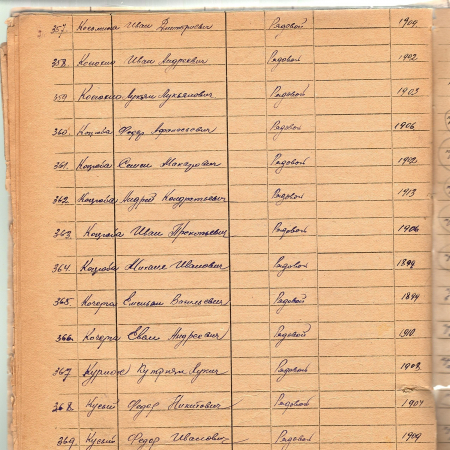 357. Косолапов Иван Дмитриевич Рядовой 1909
358. Конокио Иван Андреевич Рядовой 1902
359 Конокио Лукян Лукьянович Рядовой 1903
360. Коцюба Федор Афанасьевич Рядовой 1906
361. Коцюба Семен Макарович Рядовой 1902
362. Коцюба Андрей Кондратьевич Рядовой 1913
363 Коцюба Иван Прокопьевич Рядовой 1906
364. Коцюба Михаил Иванович Рядовой 1899
365. Кочерга Емельян Васильевич Рядовой 1899
366. Кочерга Еван Андреевич Рядовой 1910
367 Куриок Куприян Лукич Рядовой 1908
368. Куский Федор Никитович Рядовой 1907
369. Куский Федор Иванович Рядовой 1909